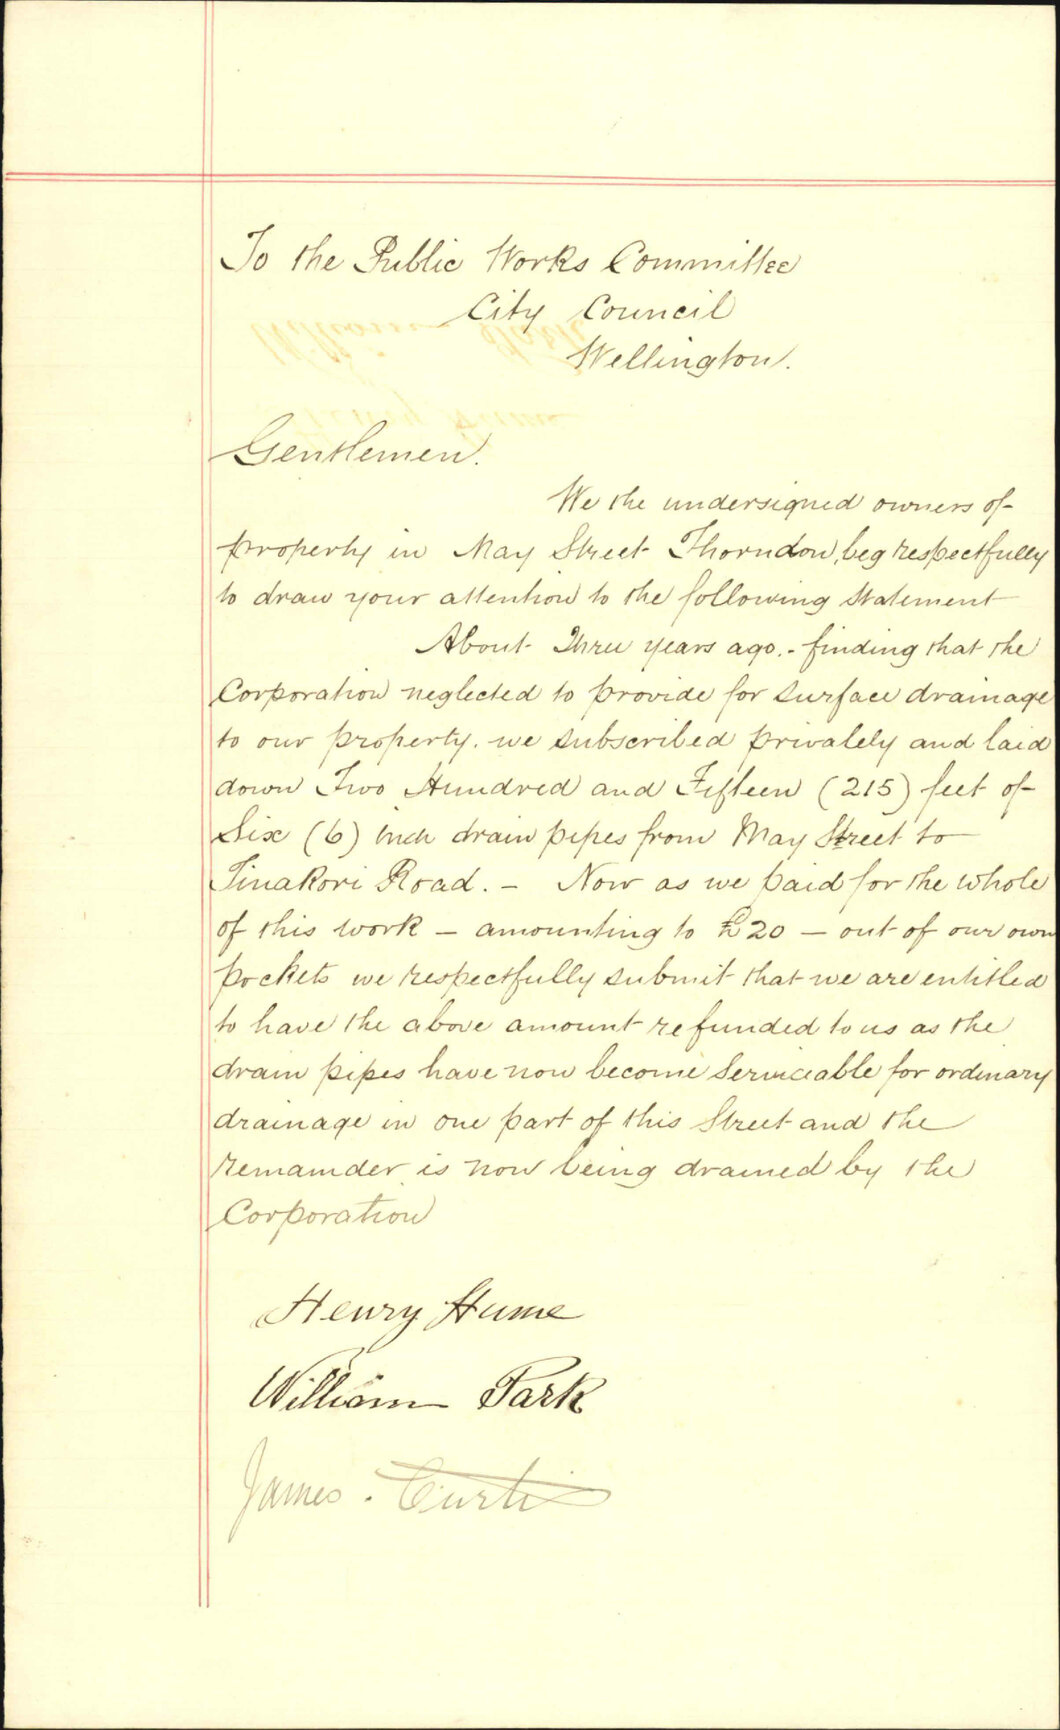 To the Public Works Committee
City Council
Wellington.
Gentlemen.
We the undersigned owners of
property in May Street Thorndon, beg respectfully
to draw your attention to the following statement
About Three years ago. - finding that the
Corporation neglected to provide for surface drainage
to our property. we subscribed privately and laid
down Two Hundred and Fifteen (215) feet of
Six (6) inch drain pipes from May Street to
Tinakori Road. - Now as we paid for the whole
of this work - amounting to £20 - out of our own
pockets we respectfully submit that we are entitled
to have the above amount refunded to us as the
drain pipes have now become serviceable for ordinary
drainage in one part of this Street and the
remainder is now being drained by the
Corporation
Henry Hume
William Park
James. Curtis